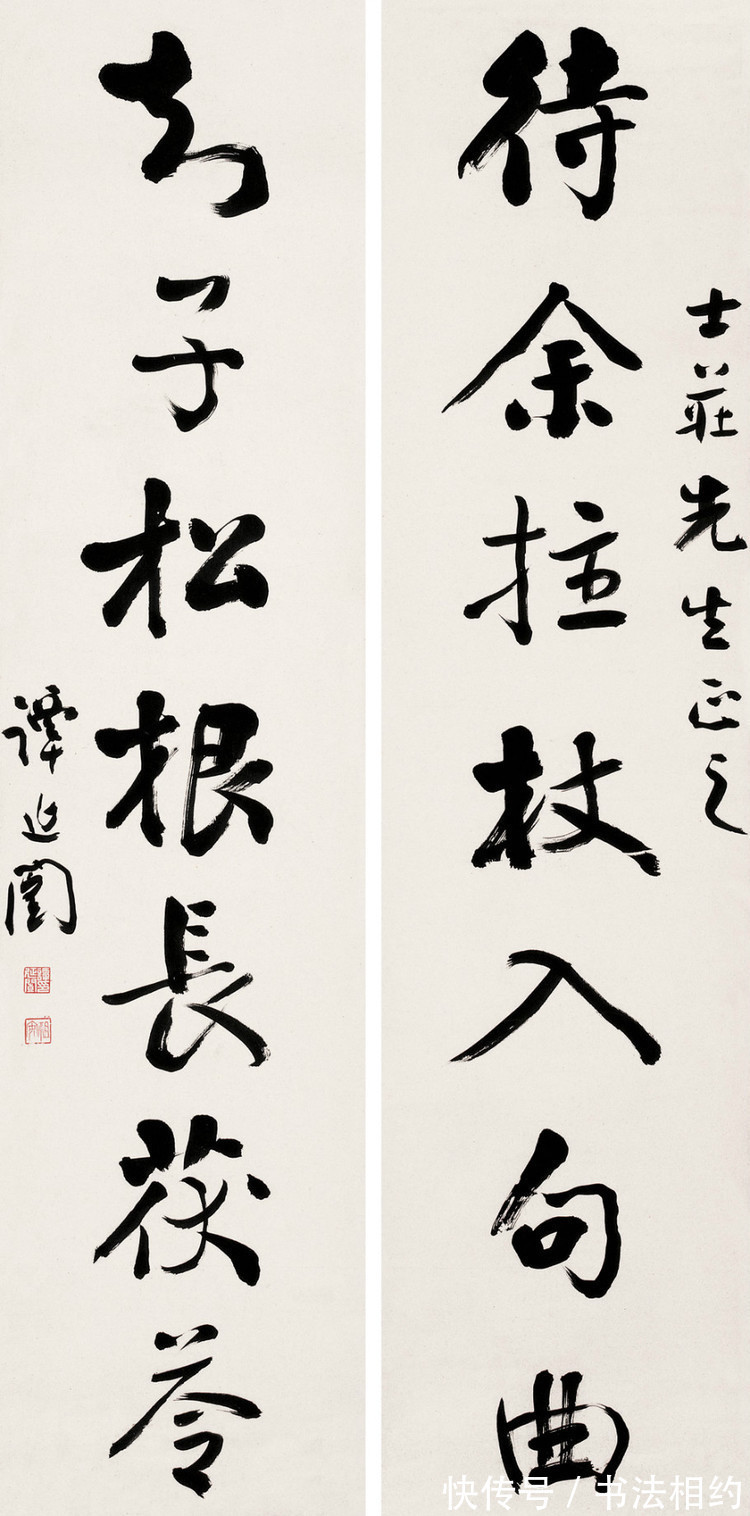 士莊先生正之
待余拄杖入句曲
知子松根長茯苓
譚延闓
快传号/书法相约